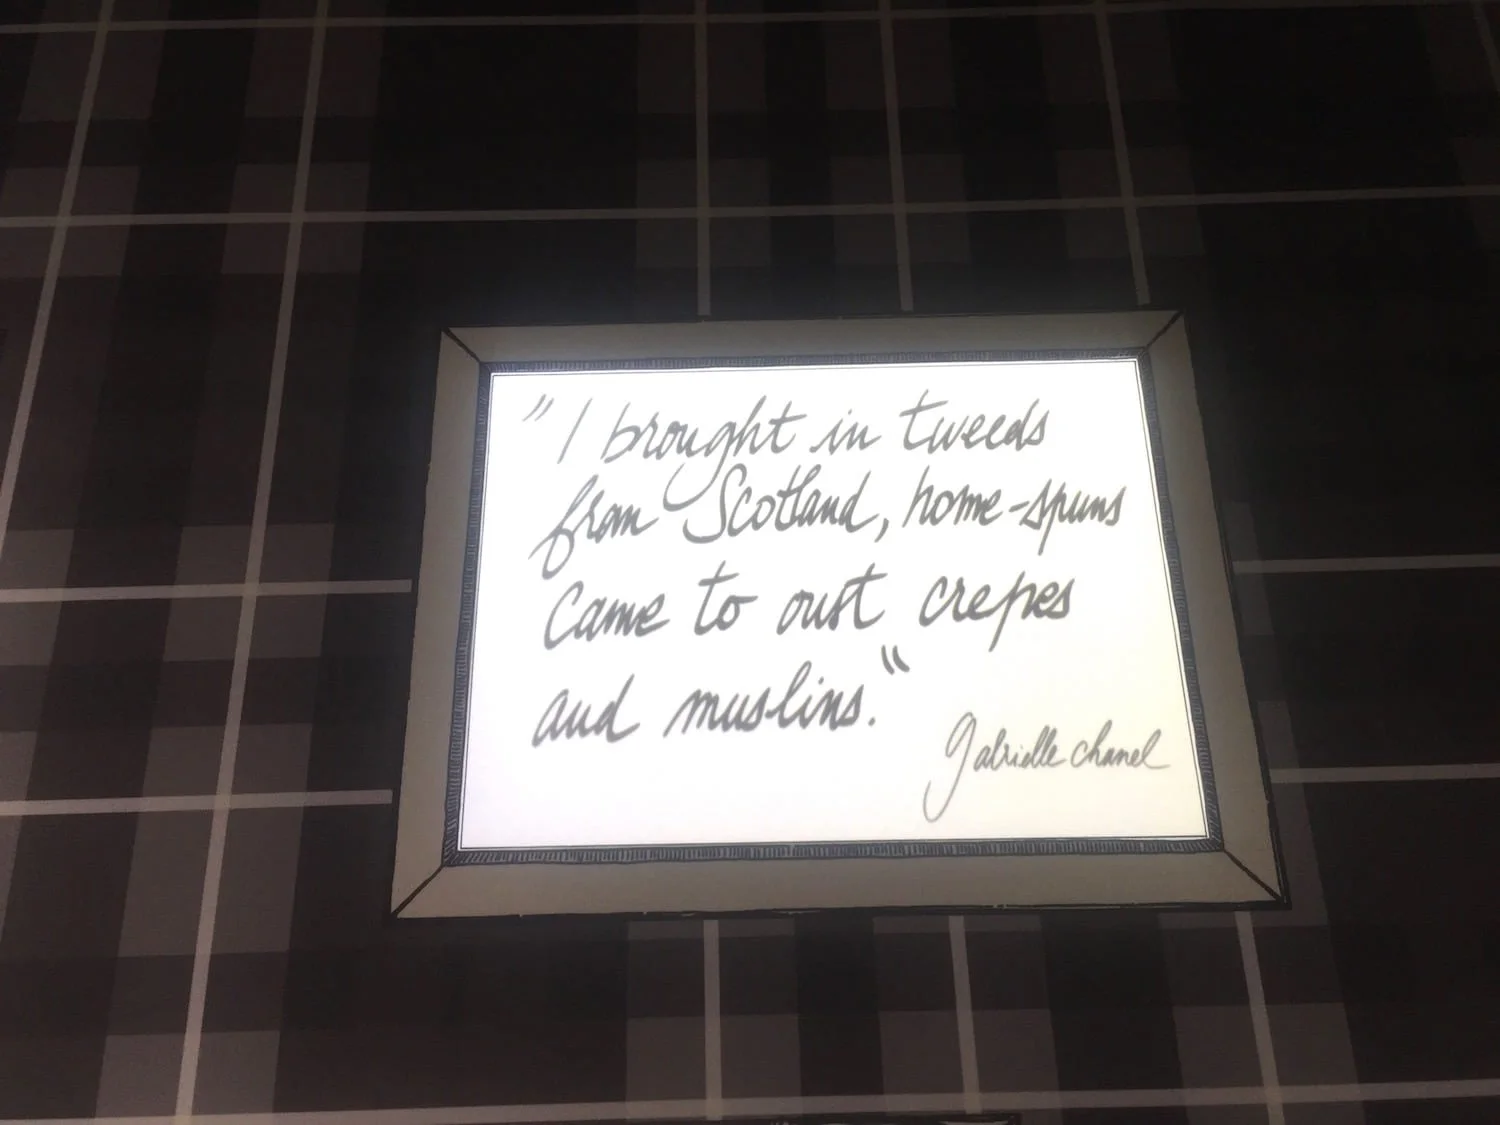 "I brought in tweeds
from Scotland, home-spuns
came to oust crepes
and muslins."
gabrielle chanel